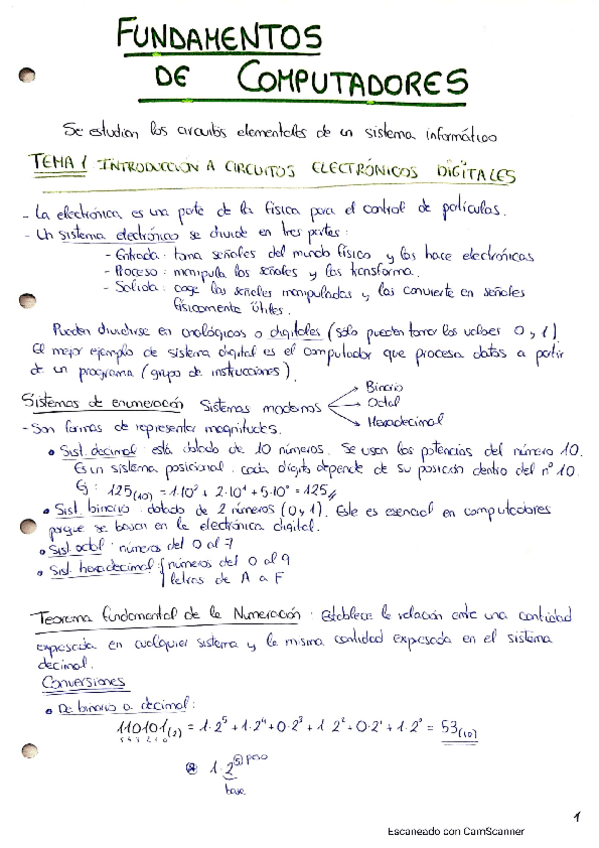 FUNDAMENTOS
DE COMPUTADORES
Se estudian los circuitos elementales de un sistema informático
TEMA 1 INTRODUCCIÓN A CIRCUITOS ELECTRÓNICOS DIGITALES
- La electrónica es una parte de la física para el control de partículas.
- Un sistema electrónico se divide en tres partes:
- Entrada: toma señales del mundo físico y las hace electrónicas
- Proceso: manipula las señales y las transforma.
- Salida: coge las señales manipuladas y las convierte en señales
físicamente útiles.
Pueden dividirse en analógicos o digitales (sólo pueden tomar los valores 0, 1).
El mejor ejemplo de sistema digital es el computador que procesa datos a partir
de un programa (grupo de instrucciones).
Sistemas de enumeración Sistemas modernos → Binario
→ Octal
→ Hexadecimal
- Son formas de representar magnitudes.
• Sist. decimal: está dotado de 10 números. Se usan las potencias del número 10.
Es un sistema posicional: cada dígito depende de su posición dentro del nº 10.
Ej: 125(10) = 1·10² + 2·10¹ + 5·10⁰ = 125
• Sist. binario: dotado de 2 números (0, 1). Este es esencial en computadores
porque se basan en la electrónica digital.
• Sist. octal: números del 0 al 7
• Sist. hexadecimal: { números del 0 al 9
letras de A a F
Teorema fundamental de la Numeración: Establece la relación entre una cantidad
expresada en cualquier sistema y la misma cantidad expresada en el sistema
decimal.
Conversiones
• De binario a decimal:
110101(2) = 1·2⁵ + 1·2⁴ + 0·2³ + 1·2² + 0·2¹ + 1·2⁰ = 53(10)
5 4 3 2 1 0
⊛ 1·2⁵ peso
base
1
Escaneado con CamScanner